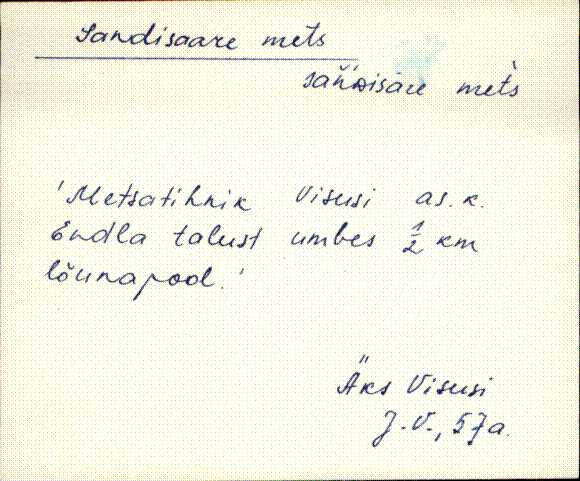 Sandisaare mets
'Metsatihnik Visusi as. k.
Endla talust umbes 1/2 km
lõunapool.'
Äks Visusi
J.V., 57a.